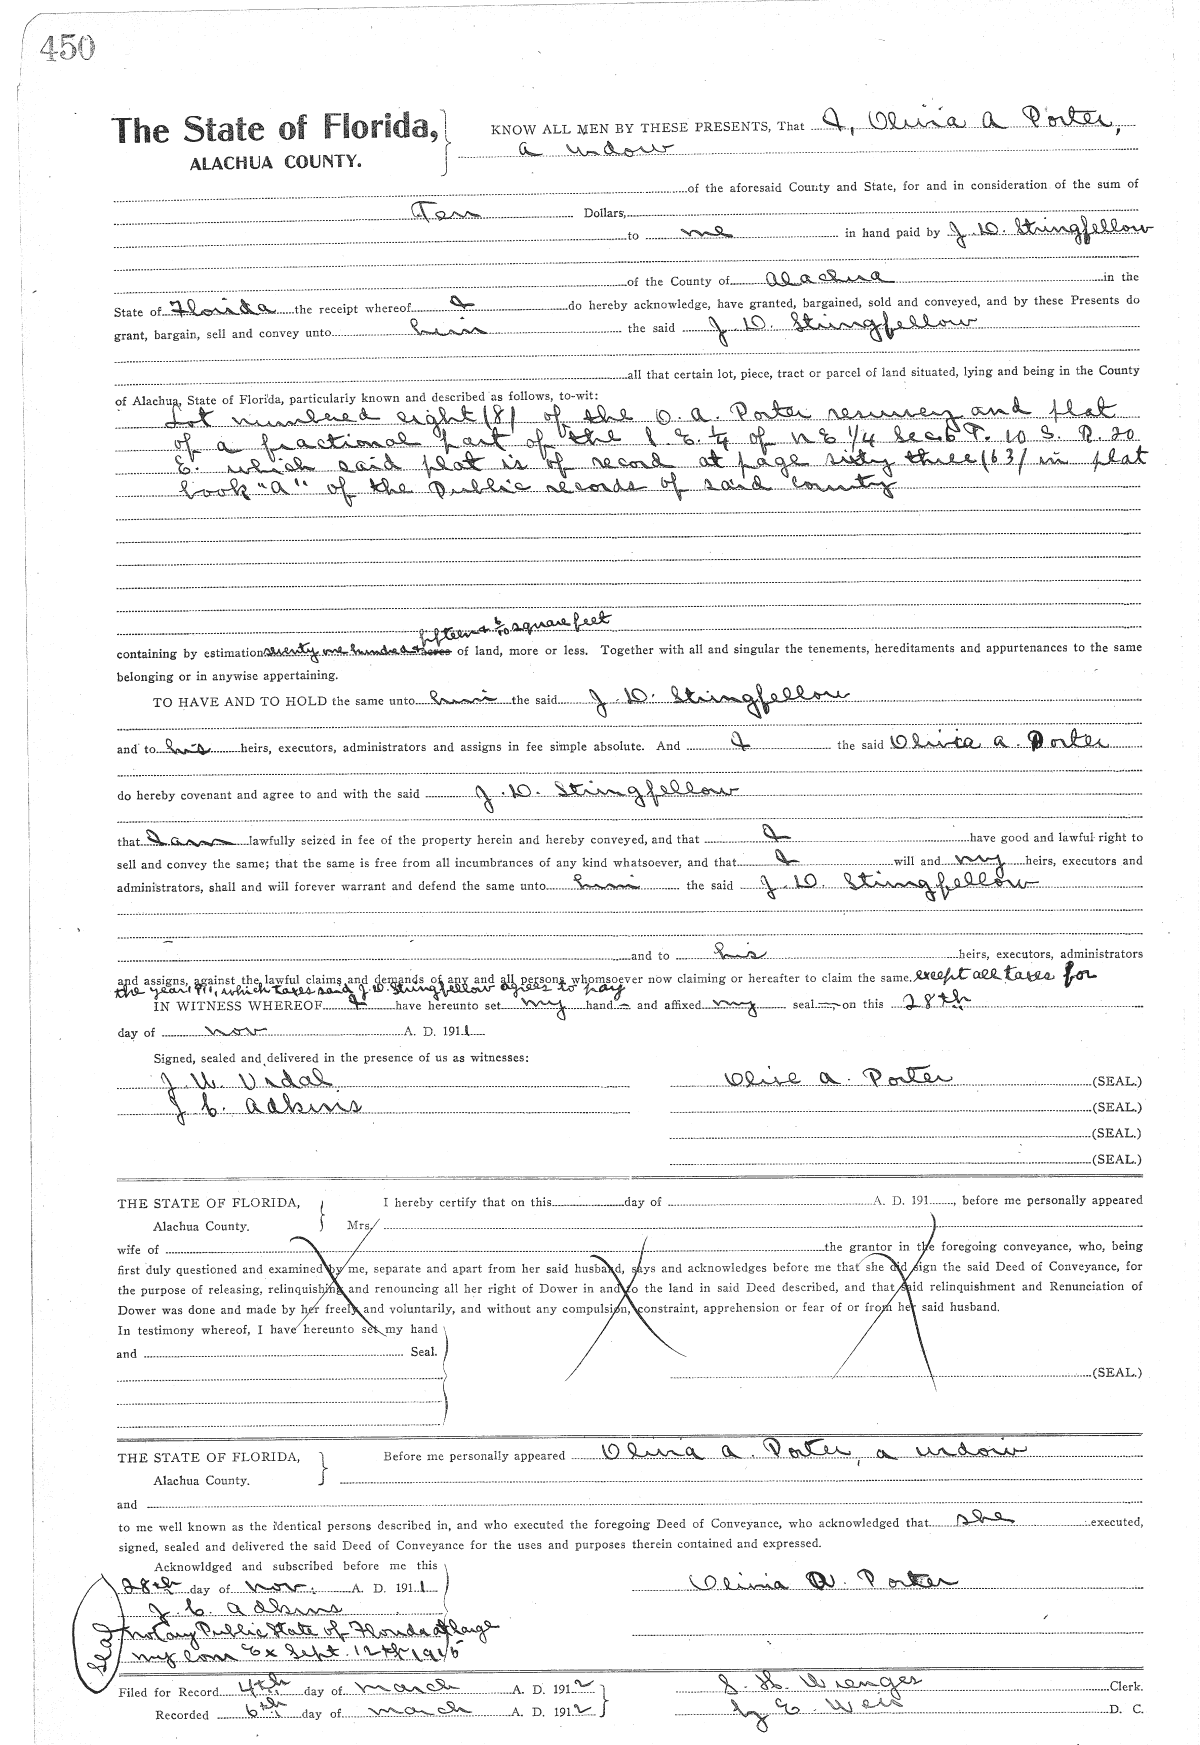 450
The State of Florida, KNOW ALL MEN BY THESE PRESENTS, That I, Olivia A Porter,
ALACHUA COUNTY. a widow
of the aforesaid County and State, for and in consideration of the sum of
Ten Dollars,
to me in hand paid by J. D. Stringfellow
of the County of Alachua in the
State of Florida the receipt whereof I do hereby acknowledge, have granted, bargained, sold and conveyed, and by these Presents do
grant, bargain, sell and convey unto him the said J. D. Stringfellow
all that certain lot, piece, tract or parcel of land situated, lying and being in the County
of Alachua, State of Florida, particularly known and described as follows, to-wit:
Lot numbered eight (8) of the O. A. Porter resurvey and plat
of a fractional part of the S. E. 1/4 of N E 1/4 Sec 5 T. 10 S. R. 20
E. which said plat is of record at page sixty three (63) in plat
book "A" of the Public records of said County
fifteen & 6/10 square feet
containing by estimation seventy one hundred & acres of land, more or less. Together with all and singular the tenements, hereditaments and appurtenances to the same
belonging or in anywise appertaining.
TO HAVE AND TO HOLD the same unto him the said J. D. Stringfellow
and to his heirs, executors, administrators and assigns in fee simple absolute. And I the said Olivia A. Porter
do hereby covenant and agree to and with the said J. D. Stringfellow
that I am lawfully seized in fee of the property herein and hereby conveyed, and that I have good and lawful right to
sell and convey the same; that the same is free from all incumbrances of any kind whatsoever, and that I will and my heirs, executors and
administrators, shall and will forever warrant and defend the same unto him the said J. D. Stringfellow
and to his heirs, executors, administrators
and assigns, against the lawful claims and demands of any and all persons whomsoever now claiming or hereafter to claim the same. except all taxes for
the year 1911, which taxes said J. D. Stringfellow agrees to pay
IN WITNESS WHEREOF I have hereunto set my hand and affixed my seal on this 28th
day of Nov A. D. 1911
Signed, sealed and delivered in the presence of us as witnesses:
J. W. Vidal Olive A. Porter (SEAL.)
J C. Adkins (SEAL.)
(SEAL.)
(SEAL.)
THE STATE OF FLORIDA, I hereby certify that on this day of A. D. 191 , before me personally appeared
Alachua County. Mrs.
wife of the grantor in the foregoing conveyance, who, being
first duly questioned and examined by me, separate and apart from her said husband, says and acknowledges before me that she did sign the said Deed of Conveyance, for
the purpose of releasing, relinquishing and renouncing all her right of Dower in and to the land in said Deed described, and that said relinquishment and Renunciation of
Dower was done and made by her freely and voluntarily, and without any compulsion, constraint, apprehension or fear of or from her said husband.
In testimony whereof, I have hereunto set my hand
and Seal.
(SEAL.)
THE STATE OF FLORIDA, Before me personally appeared Olivia A. Porter, a widow
Alachua County.
and
to me well known as the identical persons described in, and who executed the foregoing Deed of Conveyance, who acknowledged that she executed,
signed, sealed and delivered the said Deed of Conveyance for the uses and purposes therein contained and expressed.
Acknowldged and subscribed before me this
28th day of Nov. A. D. 1911 Olivia A. Porter
J. C. Adkins
Seal Notary Public State of Florida at large
my Com Ex Sept. 12th 1915
Filed for Record 4th day of March A. D. 1912 S. H. Wienges Clerk.
Recorded 6th day of March A. D. 1912 by E. Weis D. C.